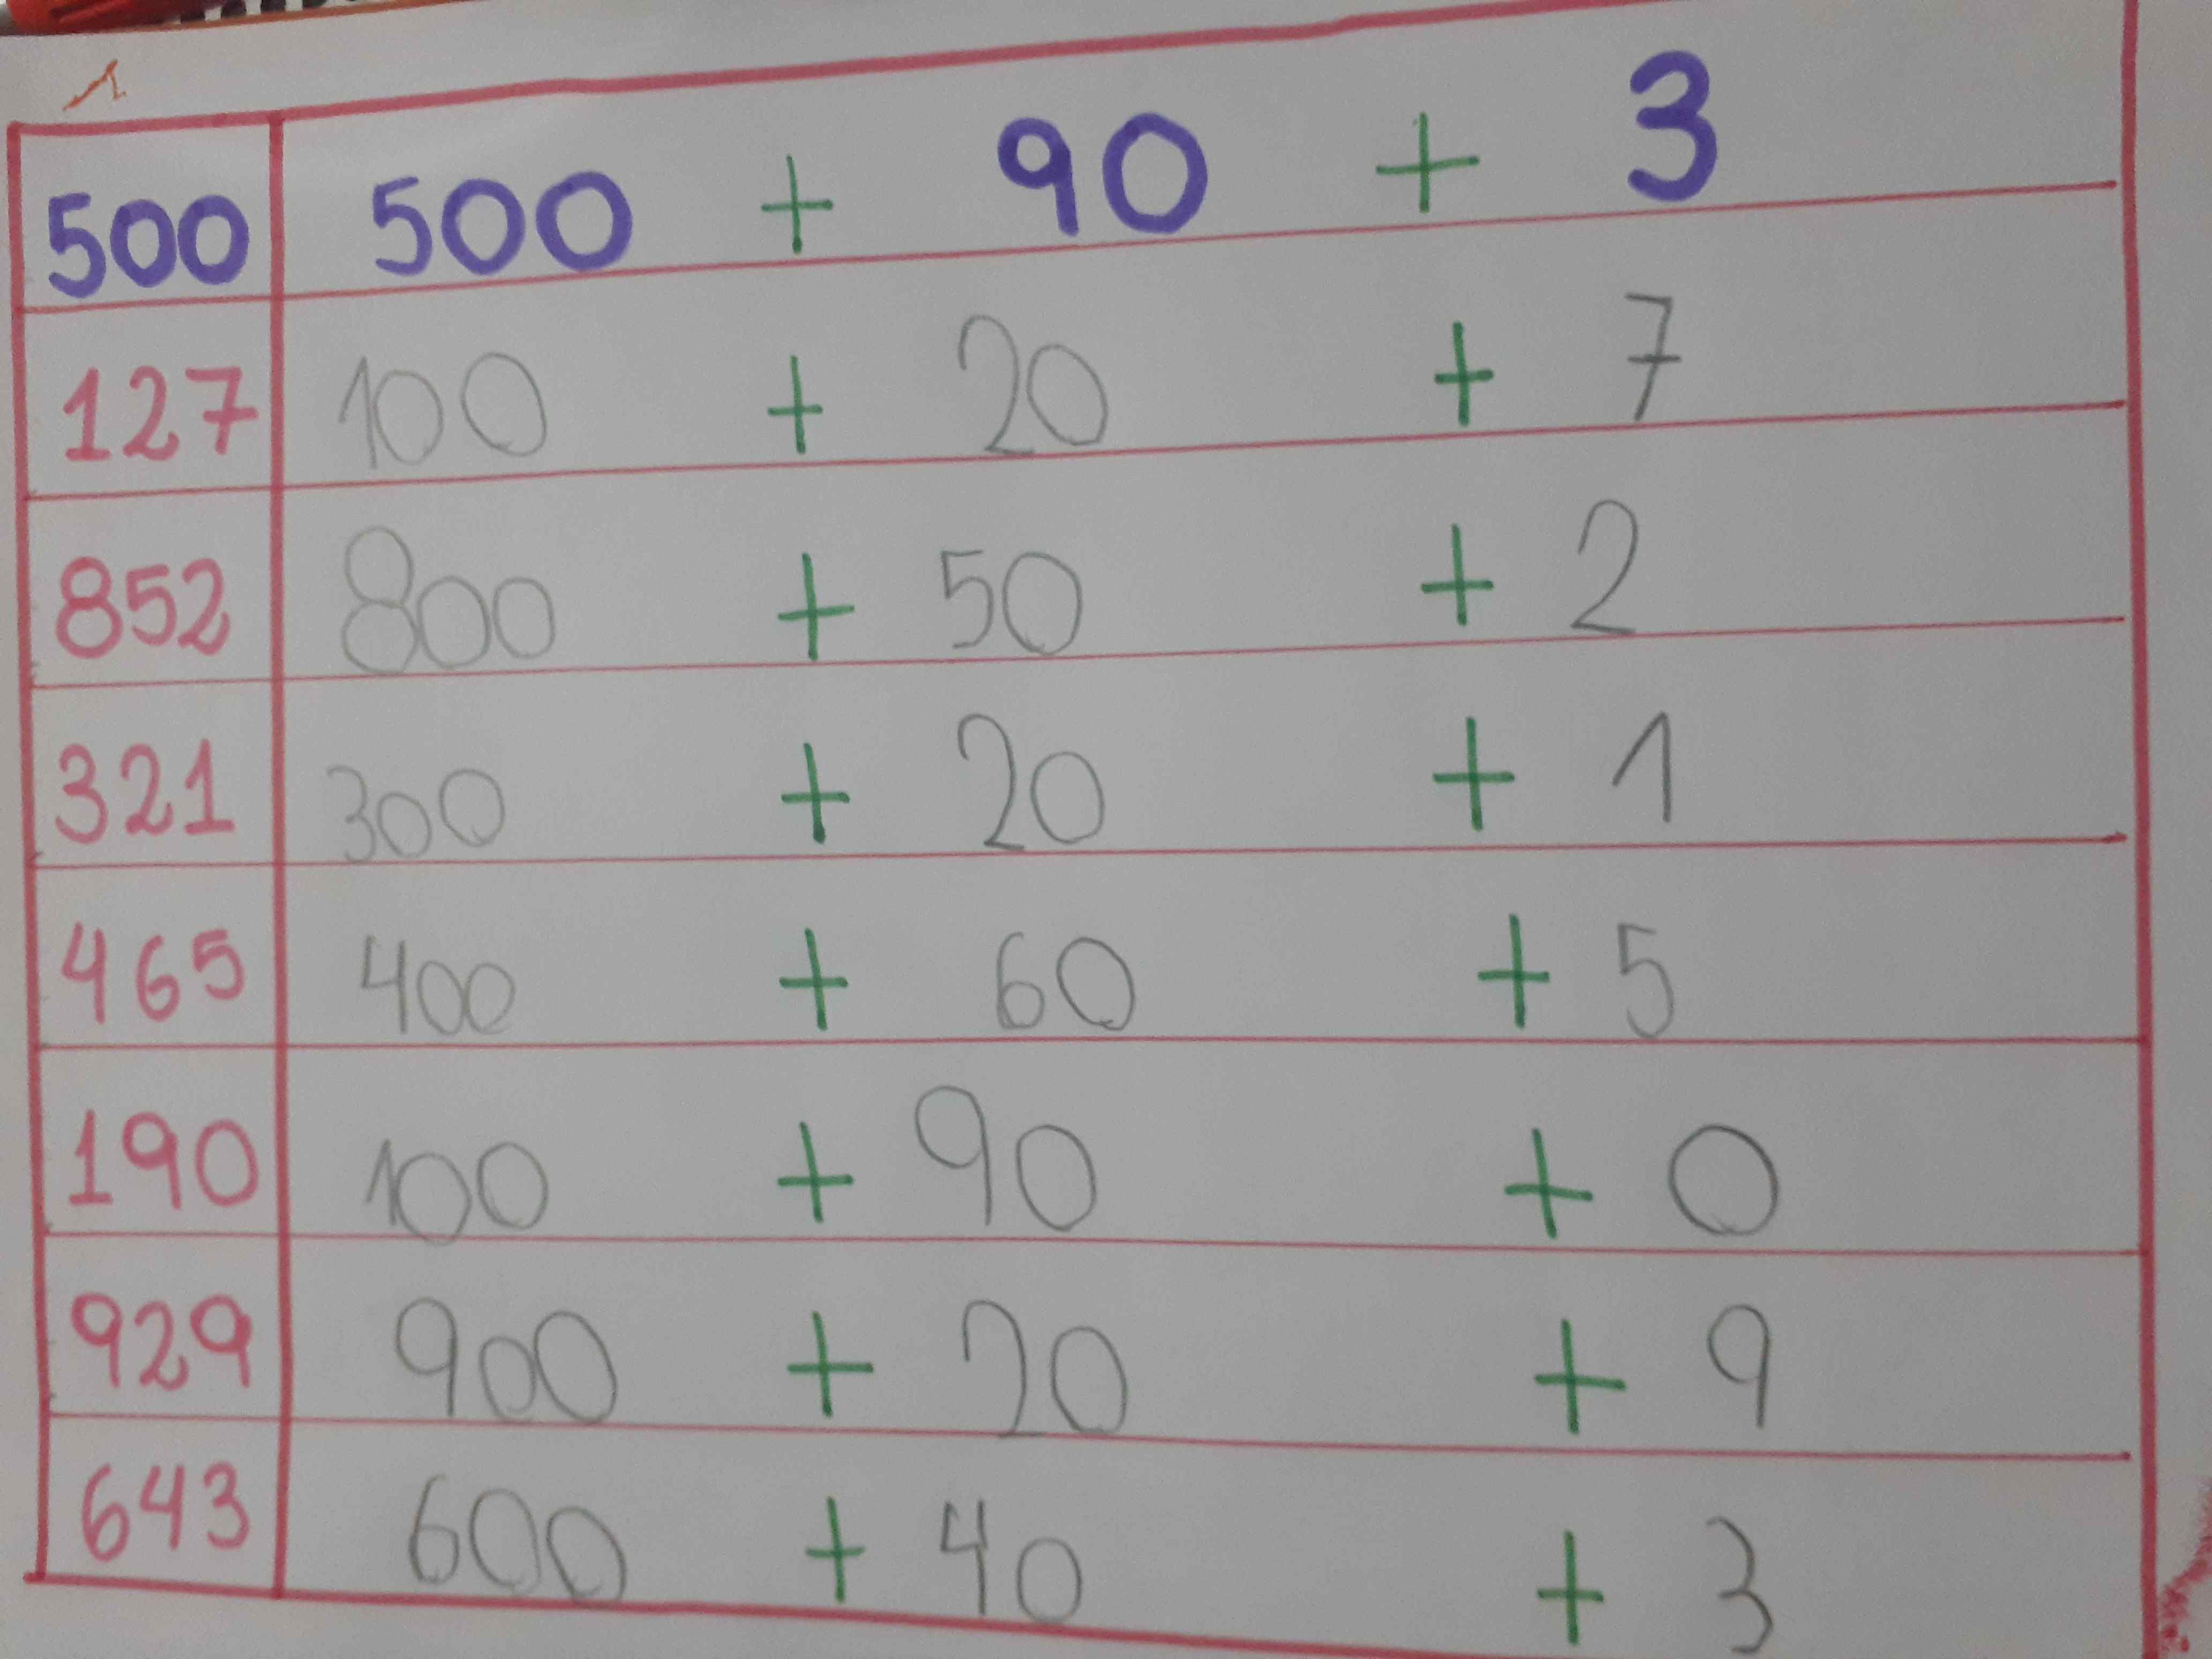 500 500 + 90 + 3
127 100 + 20 + 7
852 800 + 50 + 2
321 300 + 20 + 1
465 400 + 60 + 5
190 100 + 90 + 0
929 900 + 20 + 9
643 600 + 40 + 3